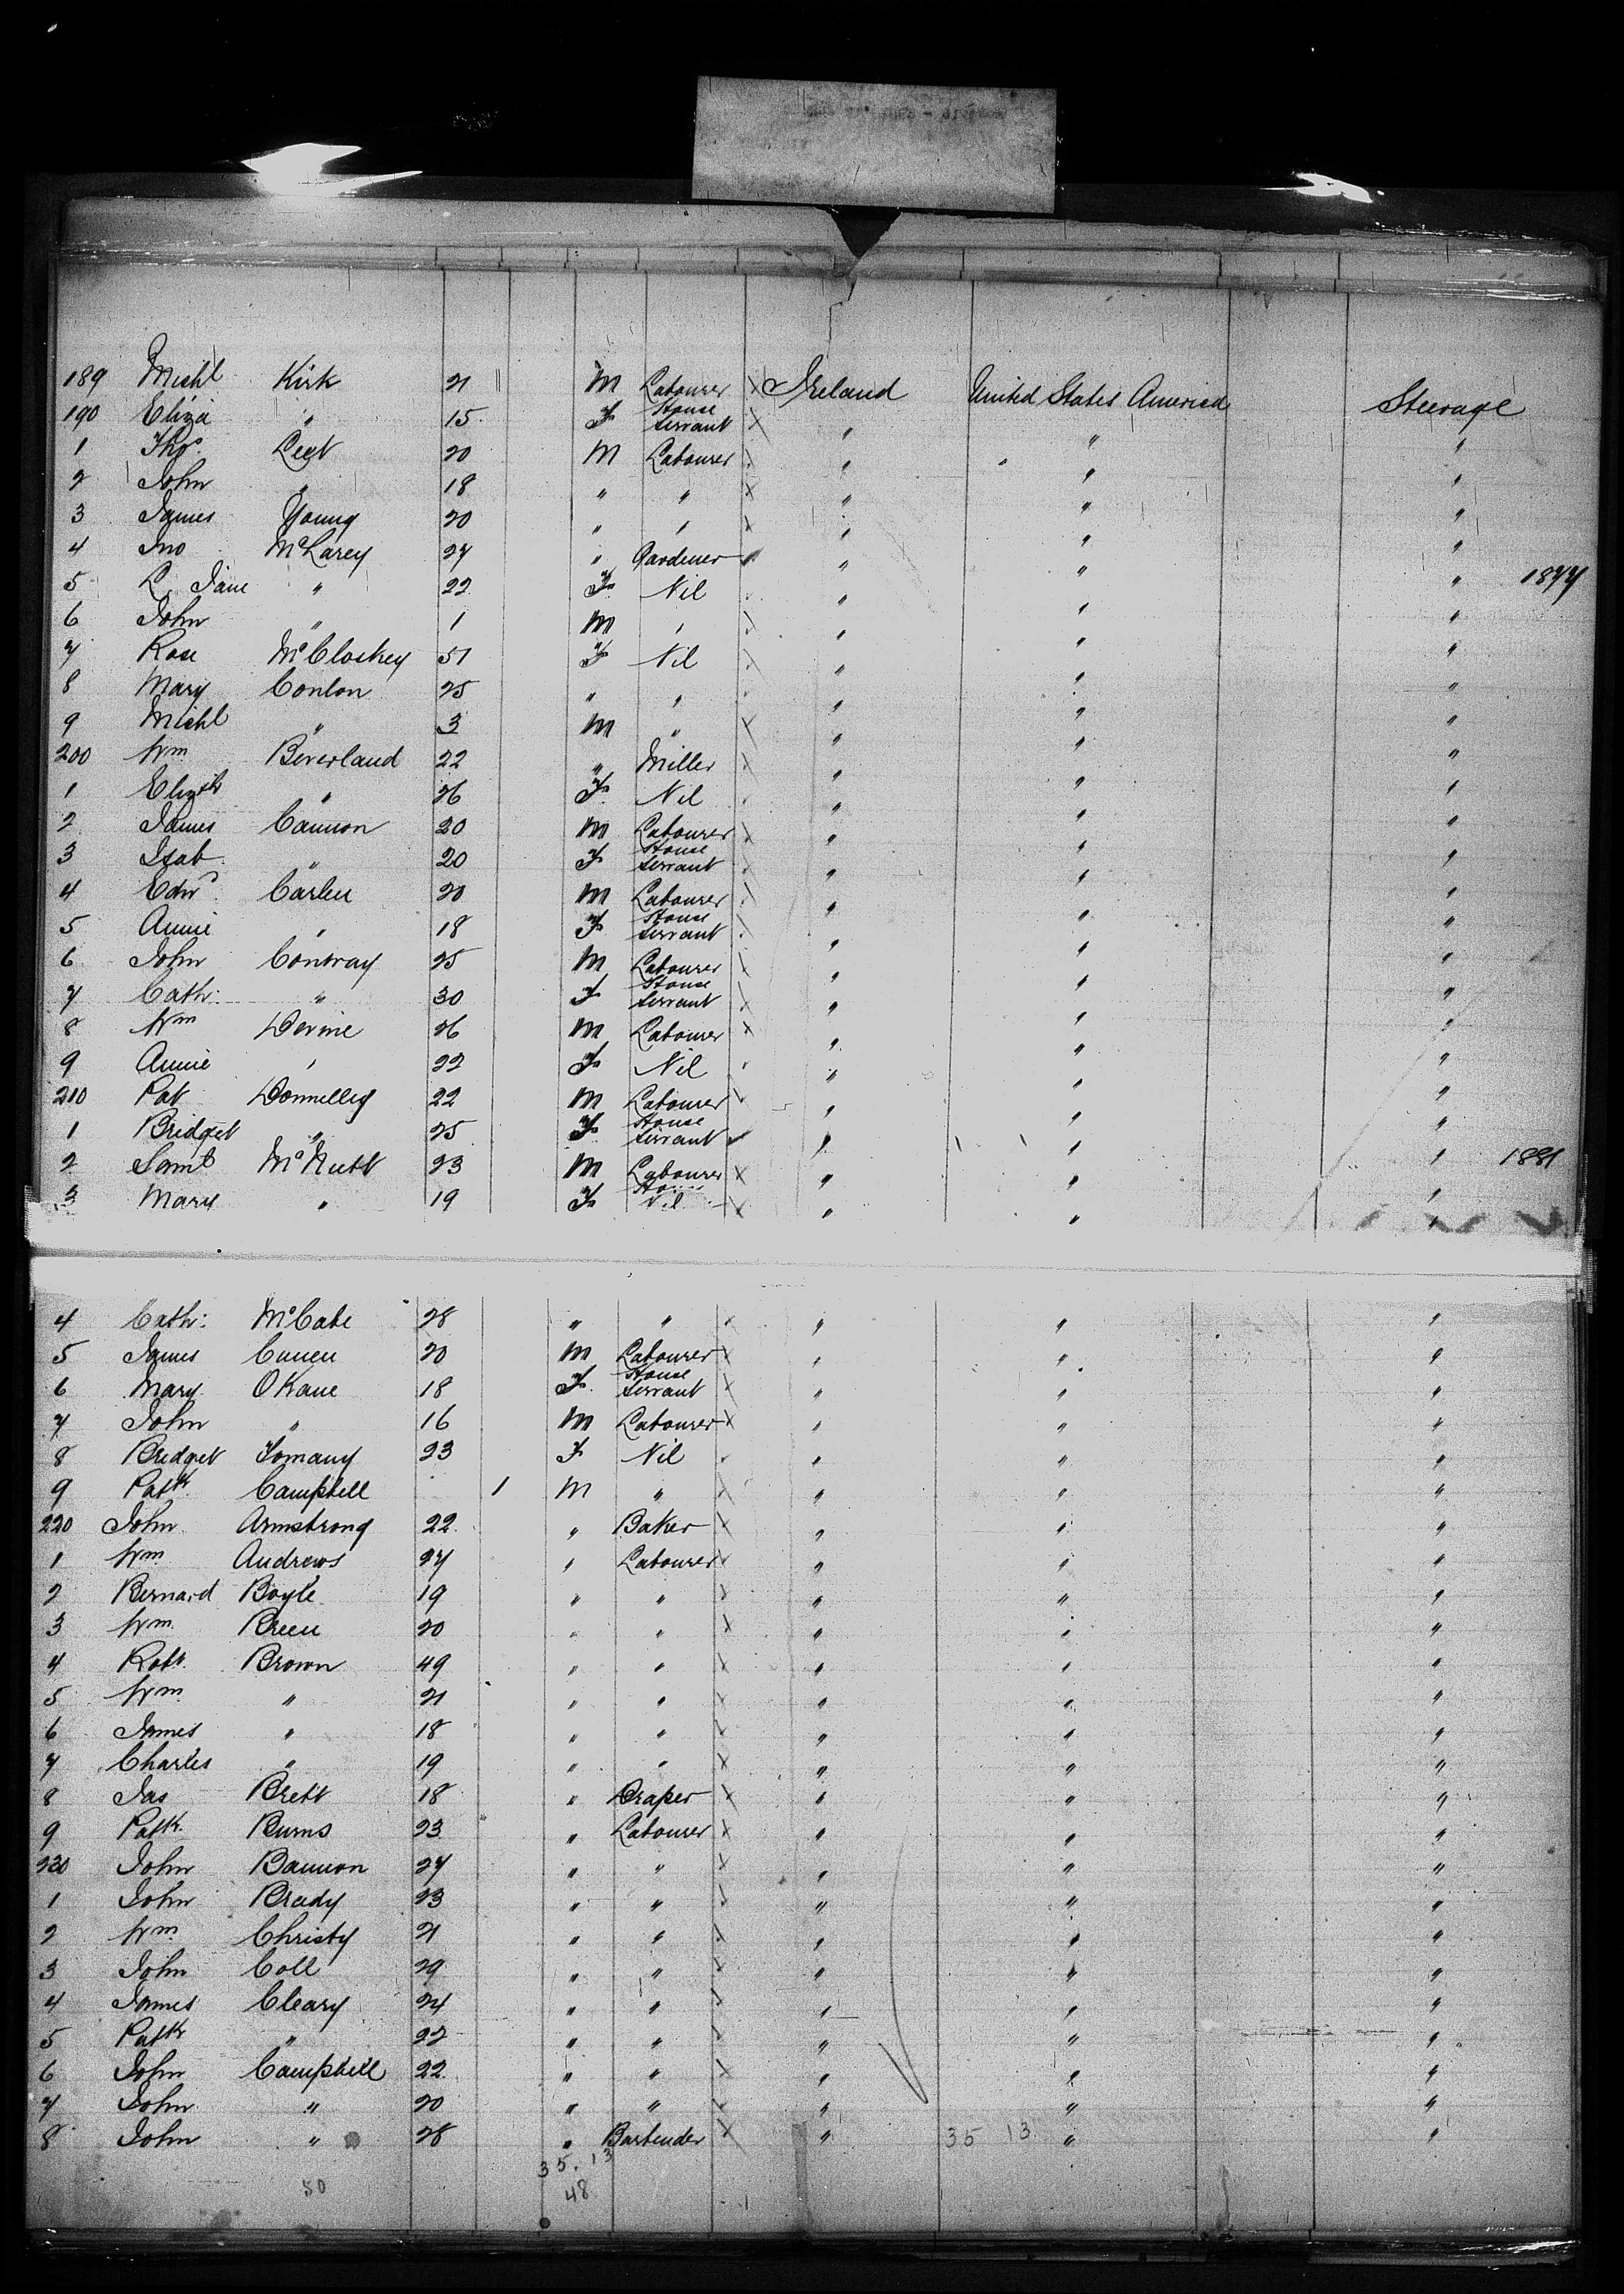 189 Michl Kirk 21 " M Labourer X Ireland United States America Steerage
190 Eliza " 15 F House Servant X " " "
1 Thos. 20 M Labourer " " "
2 John " 18 " " X " " "
3 James Young 20 " " X " " "
4 Jno 27 " Gardener " " "
5 Jane " 22 F Nil " " " 1877
6 John " 1 M " " " "
7 Rose McCloskey 51 F Nil " " "
8 Mary Conlon 25 " " " " "
9 Michl " 3 M " X " " "
200 Wm Beverland 22 " Miller " " "
1 Elizth " 26 F Nil " " "
2 James Cannon 20 M Labourer X " " "
3 Isab " 20 F House Servant " " "
4 Edwd. Carlen 20 M Labourer " " "
5 Annie " 18 F House Servant " " "
6 John Conway 25 M Labourer X " " "
7 Cath: " 30 F House Servant X " " "
8 Wm Devine 26 M Labourer X " " "
9 Annie " 22 F Nil " " "
210 Pat Donnelley 22 M Labourer " " "
1 Bridget " 25 F House Servant " " "
2 Saml McNutt 23 M Labourer X " " " 1881
3 Mary " 19 F Nil X " " "
4 Cath: McCabe 28 " " " " "
5 James Cunen 20 M Labourer X " " "
6 Mary OKane 18 F House Servant X " " "
7 John " 16 M Labourer X " " "
8 Bridget Tomany 23 F Nil " " "
9 Patk Campbell 1 M " X " " "
220 John Armstrong 22 " Baker X " " "
1 Wm Andrews 27 " Labourer X " " "
2 Bernard Boyle 19 " " X " " "
3 Wm Breen 20 " " X " " "
4 Robt. Brown 49 " " X " " "
5 Wm " 21 " " X " " "
6 James " 18 " " X " " "
7 Charles " 19 " " X " " "
8 Jas Brett 18 " Draper X " " "
9 Patk. Burns 23 " Labourer X " " "
230 John Bannon 27 " " X " " "
1 John Brady 23 " " " " "
2 Wm Christy 21 " " " " "
3 John Coll 29 " " " " "
4 James Cleary 24 " " " " "
5 Patk " 22 " " " " "
6 John Campbell 22 " " X " " "
7 John " 20 " " X " " "
8 John " 28 " Bartender X " 35 13 " "
35.13
50 48